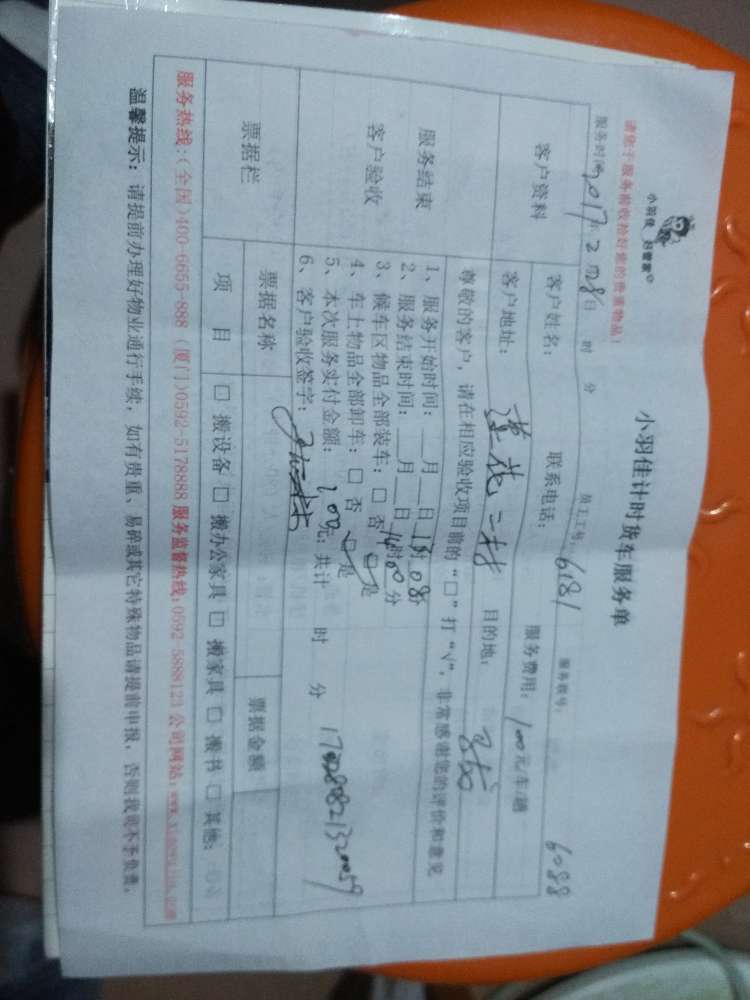 小羽佳 好管家
小羽佳计时货车服务单
请您于服务前收拾好您的贵重物品!
服务时间 2017年2月28日 时 分 员工工号: 6181 服务账号: 6088
客户资料
客户姓名: 联系电话: 服务费用: 100元/车/趟
客户地址: 莲花二村 目的地:
服务结束
客户验收
尊敬的客户,请在相应验收项目前的“□”打“√”,非常感谢您的评价和意见
1、服务开始时间:__月__日13时08分
2、服务结束时间:__月__日14时00分
3、候车区物品全部装车:□ 否 ☑ 是
4、车上物品全部卸车:□ 否 ☑ 是
5、本次服务实付金额: 200元;共计 时 分
6、客户验收签字:
票据栏
票据名称 票据金额
项 目 □ 搬设备 □ 搬办公家具 □ 搬家具 □ 搬书 □ 其他:
服务热线:(全国)400-6655-888 (厦门)0592-5178888 服务监督热线:0592-5888123 公司网站:
温馨提示:请提前办理好物业通行手续,如有贵重、易碎或其它特殊物品请提前申报,否则我司不予负责。